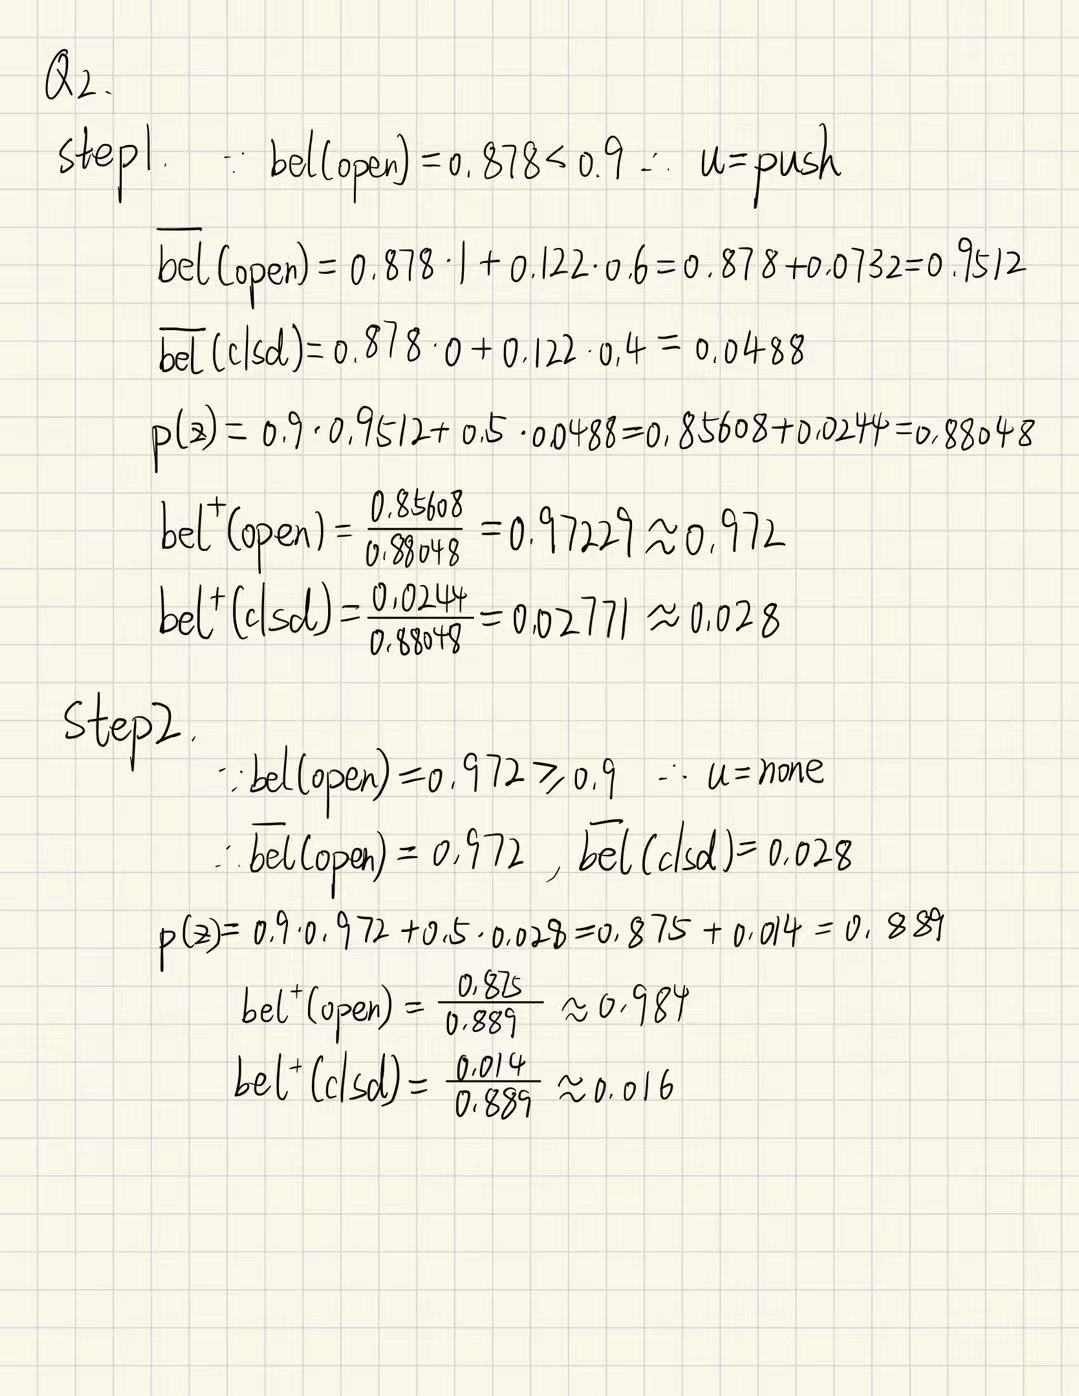 Q2.
Step1. ∵ bel(open)=0.878<0.9 ∴ u=push
b̅e̅l̅(open)=0.878·1+0.122·0.6=0.878+0.0732=0.9512
b̅e̅l̅(clsd)=0.878·0+0.122·0.4=0.0488
p(z)=0.9·0.9512+0.5·0.0488=0.85608+0.0244=0.88048
bel⁺(open)=0.85608/0.88048=0.97229≈0.972
bel⁺(clsd)=0.0244/0.88048=0.02771≈0.028
Step2.
∵bel(open)=0.972⩾0.9 ∴ u=none
∴b̅e̅l̅(open)=0.972, b̅e̅l̅(clsd)=0.028
p(z)=0.9·0.972+0.5·0.028=0.875+0.014=0.889
bel⁺(open)=0.875/0.889≈0.984
bel⁺(clsd)=0.014/0.889≈0.016